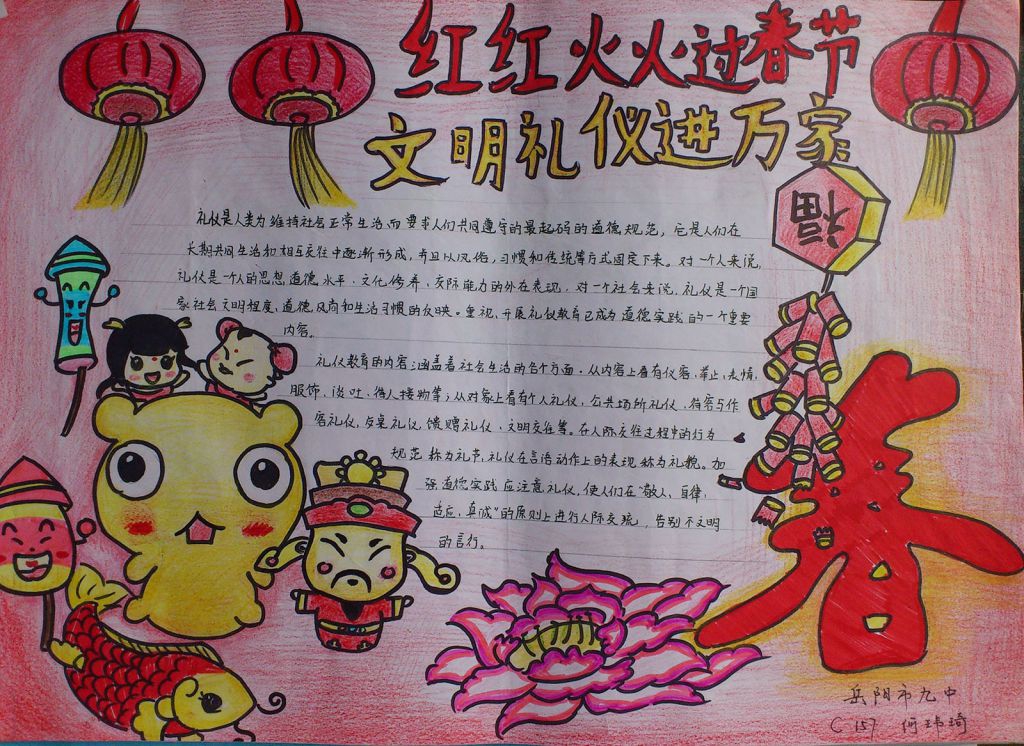 红红火火过春节
文明礼仪进万家
福
礼仪是人类为维持社会正常生活而要求人们共同遵守的最起码的道德规范，它是人们在
长期共同生活和相互交往中逐渐形成，并且以风俗、习惯和传统等方式固定下来。对一个人来说，
礼仪是一个人的思想道德水平、文化修养、交际能力的外在表现，对一个社会来说，礼仪是一个国
家社会文明程度、道德风尚和生活习惯的反映。重视、开展礼仪教育已成为道德实践的一个重要
内容。
礼仪教育的内容涵盖着社会生活的各个方面。从内容上看有仪容、举止、表情、
服饰、谈吐、待人接物等；从对象上看有个人礼仪、公共场所礼仪、待客与作
客礼仪、餐桌礼仪、馈赠礼仪、文明交往等。在人际交往过程中的行为
规范称为礼节，礼仪在言语动作上的表现称为礼貌。加
强道德实践应注意礼仪，使人们在“敬人、自律、
适应、真诚”的原则上进行人际交流，告别不文明
的言行。
春
岳阳市九中
C157 何玮琦